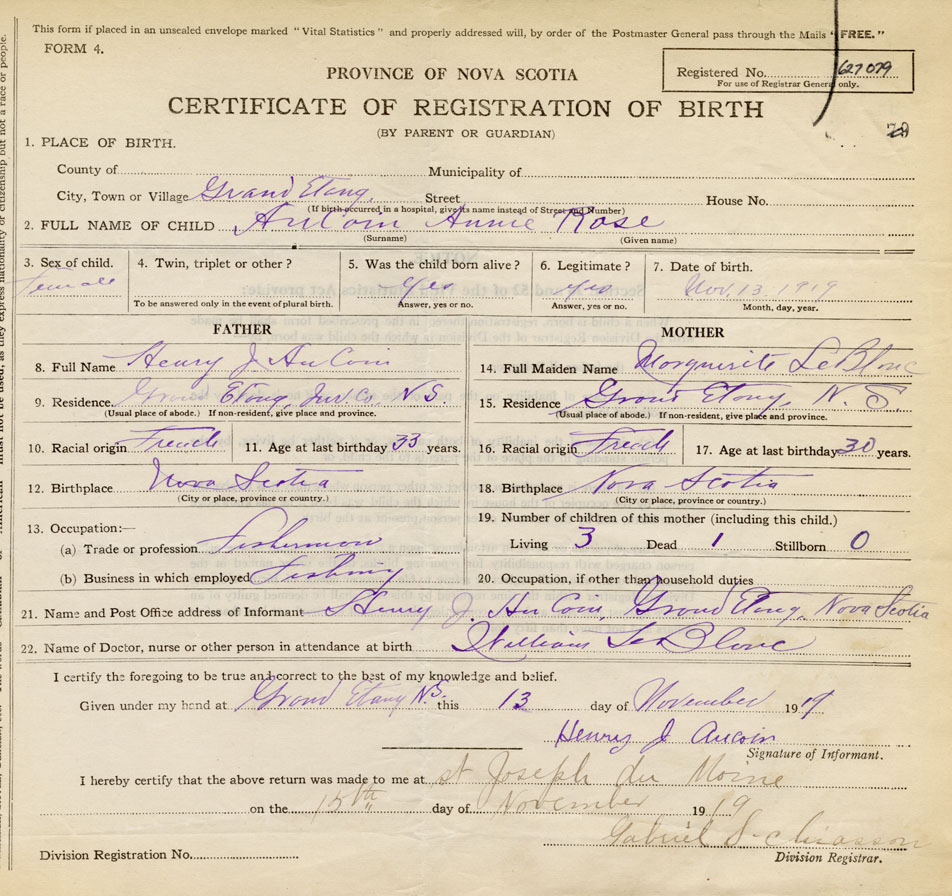 This form if placed in an unsealed envelope marked "Vital Statistics" and properly addressed will, by order of the Postmaster General pass through the Mails "FREE."
FORM 4.
Registered No. 627079
For use of Registrar General only.
PROVINCE OF NOVA SCOTIA
CERTIFICATE OF REGISTRATION OF BIRTH
(BY PARENT OR GUARDIAN)
1. PLACE OF BIRTH.
County of Municipality of
City, Town or Village Grand Etang, Street House No.
(If birth occurred in a hospital, give its name instead of Street and Number)
2. FULL NAME OF CHILD AuCoin Annie Rose
(Surname) (Given name)
3. Sex of child. 4. Twin, triplet or other? 5. Was the child born alive? 6. Legitimate? 7. Date of birth.
Female Yes Yes Nov. 13, 1919
To be answered only in the event of plural birth. Answer, yes or no. Answer, yes or no. Month, day, year.
FATHER MOTHER
8. Full Name Henry J. AuCoin 14. Full Maiden Name Marguerite LeBlanc
9. Residence. Grand Etang, Inv. Co. N.S. 15. Residence Grand Etang, N.S.
(Usual place of abode.) If non-resident, give place and province. (Usual place of abode.) If non-resident, give place and province.
10. Racial origin French 11. Age at last birthday 33 years. 16. Racial origin French 17. Age at last birthday 30 years.
12. Birthplace Nova Scotia 18. Birthplace Nova Scotia
(City or place, province or country.) (City or place, province or country.)
13. Occupation:— 19. Number of children of this mother (including this child.)
(a) Trade or profession Fisherman Living 3 Dead 1 Stillborn 0
(b) Business in which employed Fishing 20. Occupation, if other than household duties
21. Name and Post Office address of Informant Henry J. AuCoin, Grand Etang, Nova Scotia
22. Name of Doctor, nurse or other person in attendance at birth William LeBlanc
I certify the foregoing to be true and correct to the best of my knowledge and belief.
Given under my hand at Grand Etang N.S. this 13 day of November 1919
Henry J Aucoin
Signature of Informant.
I hereby certify that the above return was made to me at St Joseph du Moine
on the 15th day of November 1919
Gabriel S. Chiasson
Division Registration No. Division Registrar.